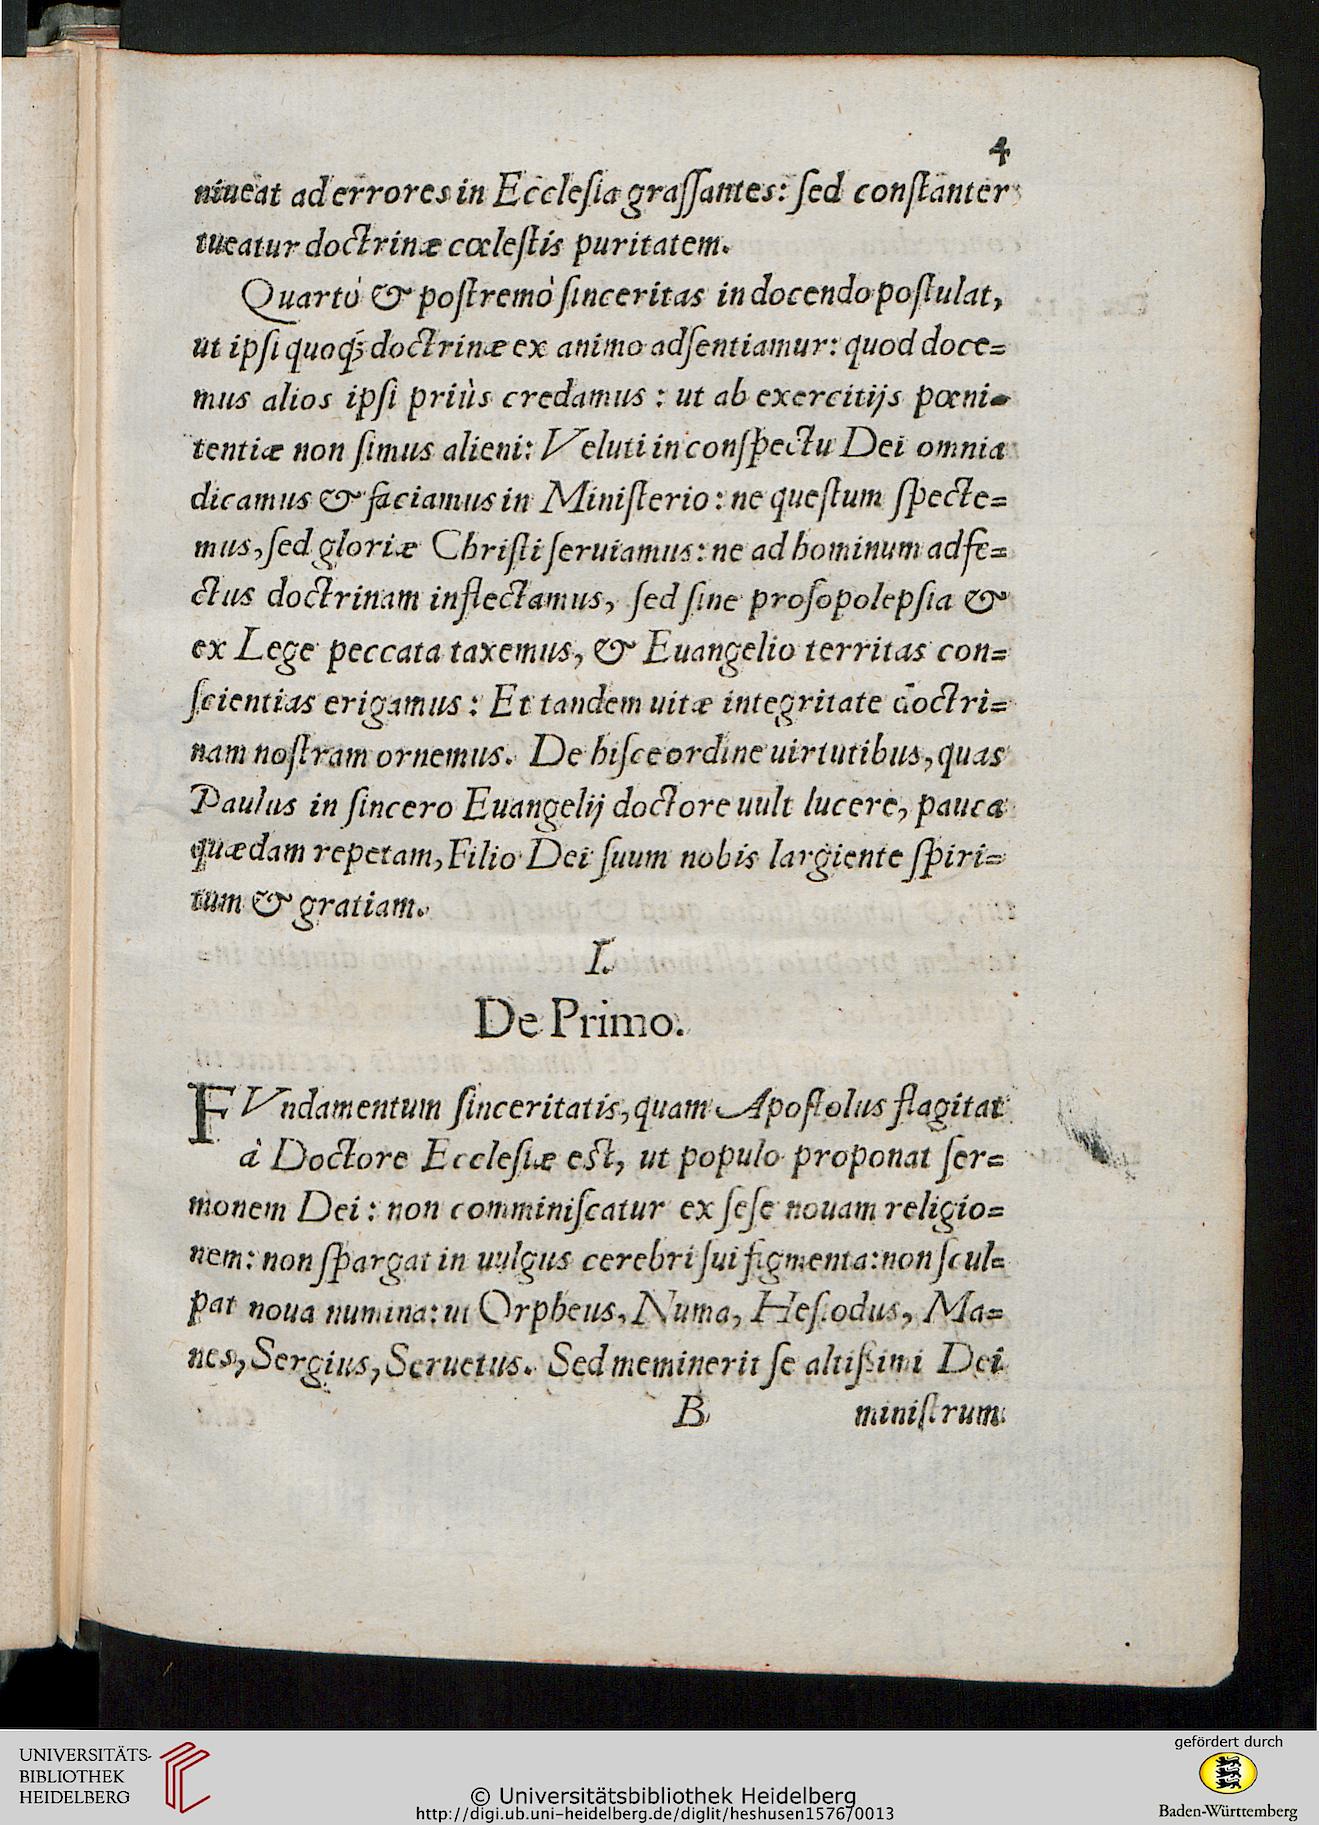 4
niueat ad errores in Eccleſia graſſantes: ſed conſtanter
tueatur doctrinæ cœleſtis puritatem.
Quartò & poſtremò ſinceritas in docendo poſtulat,
ut ipſi quoq́; doctrinæ ex animo adſentiamur: quod doce=
mus alios ipſi priùs credamus : ut ab exercitijs pœni=
tentiæ non ſimus alieni: Veluti in conſpectu Dei omnia
dicamus & faciamus in Miniſterio: ne queſtum ſpecte=
mus, ſed gloriæ Chriſti ſeruiamus: ne ad hominum adfe=
ctus doctrinam inflectamus, ſed ſine proſopolepſia &
ex Lege peccata taxemus, & Euangelio territas con=
ſcientias erigamus : Et tandem uitæ integritate doctri=
nam noſtram ornemus. De hiſce ordine uirtutibus, quas
Paulus in ſincero Euangelij doctore uult lucere, pauca
quædam repetam, Filio Dei ſuum nobis largiente ſpiri=
tum & gratiam.
I.
De Primo.
FVndamentum ſinceritatis, quam Apoſtolus flagitat
à Doctore Eccleſiæ eſt, ut populo proponat ſer=
monem Dei : non comminiſcatur ex ſeſe nouam religio=
nem: non ſpargat in uulgus cerebri ſui figmenta: non ſcul=
pat noua numina: ut Orpheus, Numa, Heſiodus, Ma=
nes, Sergius, Seruetus. Sed meminerit ſe altißimi Dei
B ministrum
UNIVERSITÄTS-
BIBLIOTHEK
HEIDELBERG
© Universitätsbibliothek Heidelberg
http://digi.ub.uni-heidelberg.de/diglit/heshusen1576/0013
gefördert durch
Baden-Württemberg